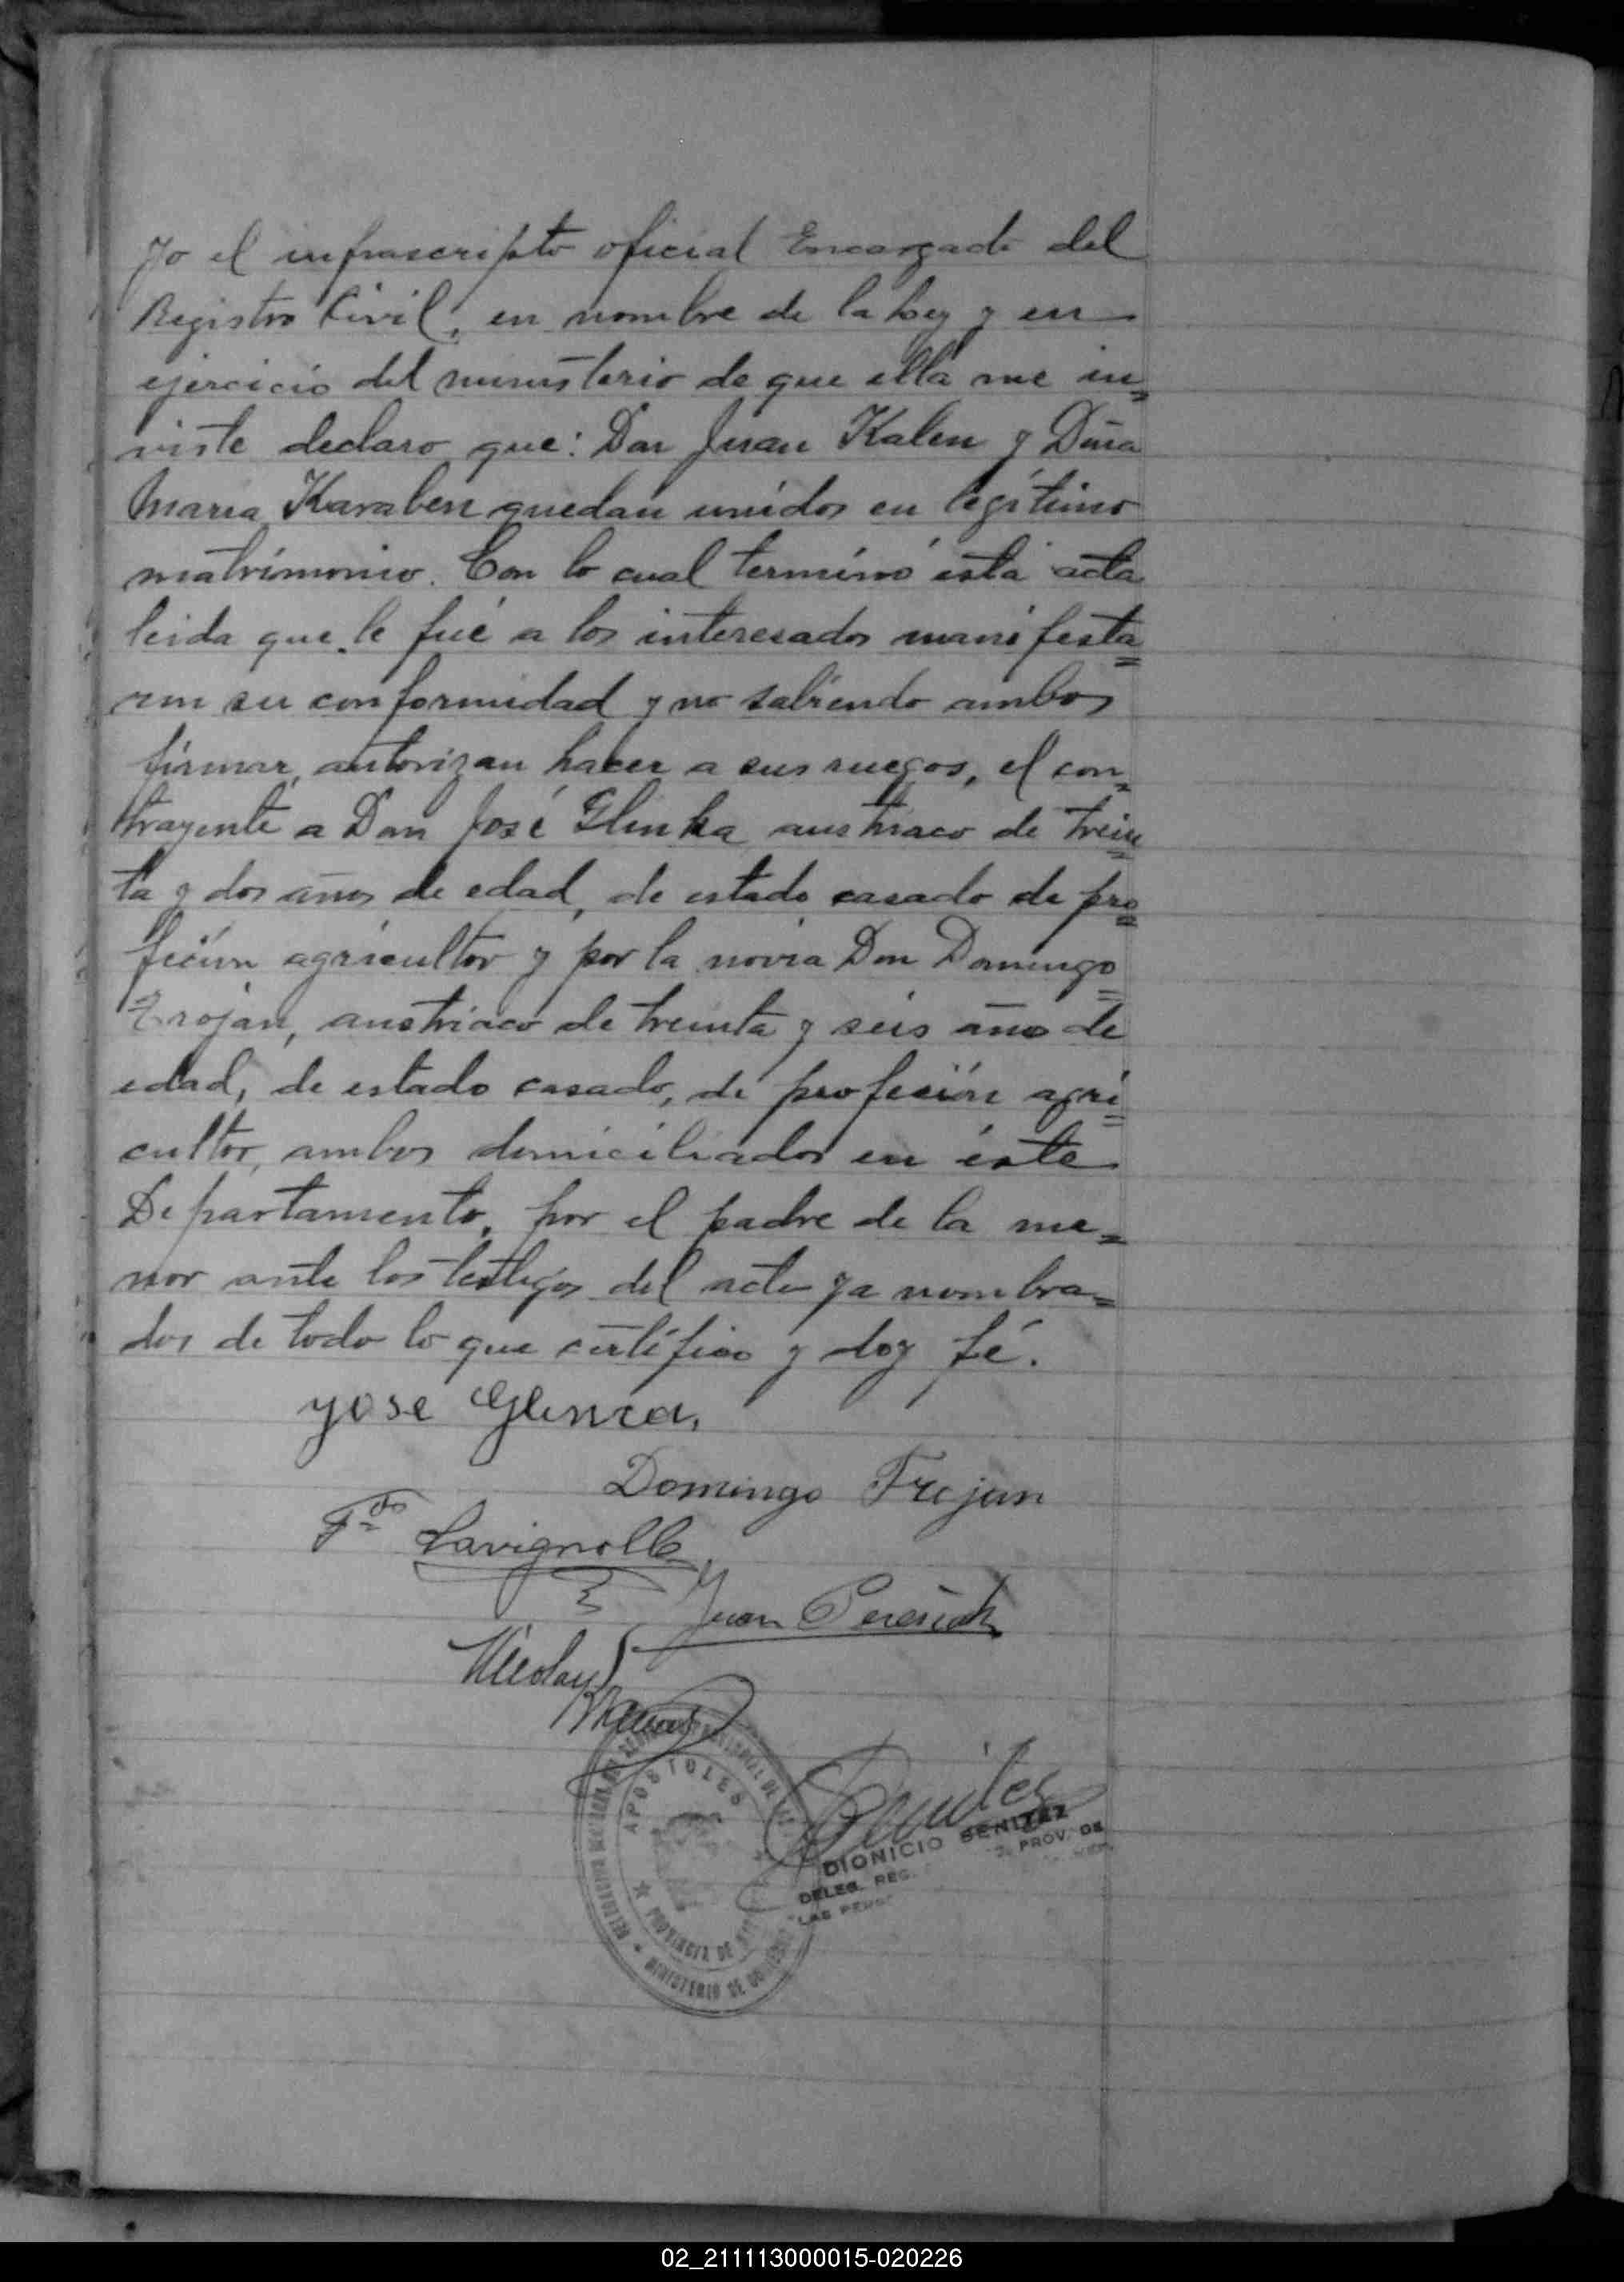 Yo el infrascripto oficial Encargado del
Registro Civil, en nombre de la Ley y en
ejercicio del ministerio de que ella me in=
viste declaro que: Don Juan Kalen y Dña
Maria Karaben quedan unidos en legítimo
matrimonio. Con lo cual terminó esta acta
leida que le fué a los interesados manifesta=
ron su conformidad y no sabiendo ambos
firmar, autorizan hacer a sus ruegos, el con=
trayente a Dan José Glinka austriaco de trein=
ta y dos años de edad, de estado casado de pro=
feción agricultor y por la novia Don Domingo=
Trojan, austriaco de treinta y seis años de
edad, de estado casado, de profeción agri=
cultor, ambos domiciliados en éste
Departamento, por el padre de la me=
nor ante los testigos del acto ya nombra=
dos de todo lo que certifico y doy fé.
yose Glinca,
Domingo Trojan
Lavignolle
Juan
Nicolas
APOSTOLES
PROVINCIA DE
MINISTERIO DE
Benitez
DIONICIO BENITEZ
DELEG. REG. PROV. DE
LAS
02_211113000015-020226